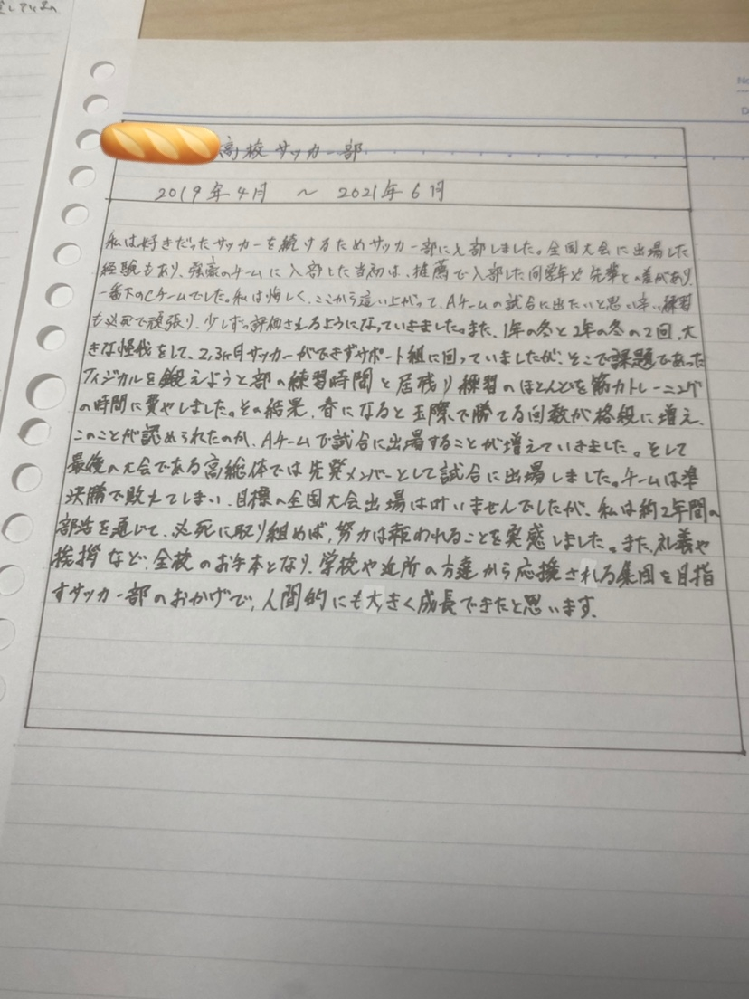 高校サッカー部
2019年4月 ～ 2021年6月
私は好きだったサッカーを続するためサッカー部に入部しました。全国大会に出場した
経験もあり、強豪のチームに入部した当初は、推薦で入部した同学年や先輩との差があり、
一番下のCチームでした。私は悔しく、ここから這い上がって、Aチームの試合に出たいと思い辛い練習
も必死で頑張り、少しずつ評価されるようになっていきました。また、1年の冬と2年の冬の2回、大
きな怪我をして、2,3ヶ月サッカーができずサポート組に回っていましたが、そこで課題であった
フィジカルを鍛えようと部の練習時間と居残り練習のほとんどを筋力トレーニング
の時間に費やしました。その結果、春になると玉際で勝てる回数が格段に増え、
このことが認められたのか、Aチームで試合に出場することが増えていきました。そして
最後の大会である高総体では先発メンバーとして試合に出場しました。チームは準
決勝で敗れてしまい、目標の全国大会出場は叶いませんでしたが、私は約2年間の
部活を通じて、必死に取り組めば、努力は報われることを実感しました。また、礼義や
挨拶など、全校のお手本となり、学校や近所の方達から応援される集団を目指
すサッカー部のおかげで、人間的にも大きく成長できたと思います。